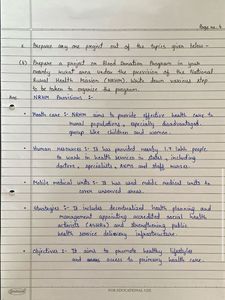 Page no. 4
6. Prepare any one project out of the topics given below -
(b) Prepare a project on Blood Donation Program in your
mainly rural area under the provision of the National
Rural Health Mission (NRHM). Write down various steps
to be taken to organise the program.
Ans. NRHM Provisions :-
• Health care :- NRHM aims to provide effective health care to
rural populations, especially disadvantaged
group like children and women.
• Human Resources :- It has provided nearly 1.9 lakh people
to work in health services to states, including
doctors, specialists, ANMs and staff nurses.
• Mobile medical units :- It has used mobile medical units to
cover unserved areas.
• Strategies :- It includes decentralised health planning and
management appointing accredited social health
activists (ASHAs) and strengthening public
health service delivery infrastructure.
• Objectives :- It aims to promote healthy lifestyles
and access to primary health care.
FOR EDUCATIONAL USE